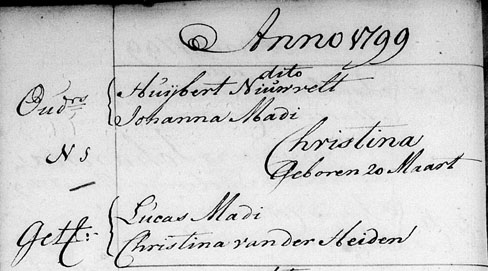 Anno 1799
dito
Ouders Huijbert Niuwvelt
Johanna Madi
N 5
Christina
Geboren 20 Maart
Lucas Madi
Gett: Christina van der Heiden